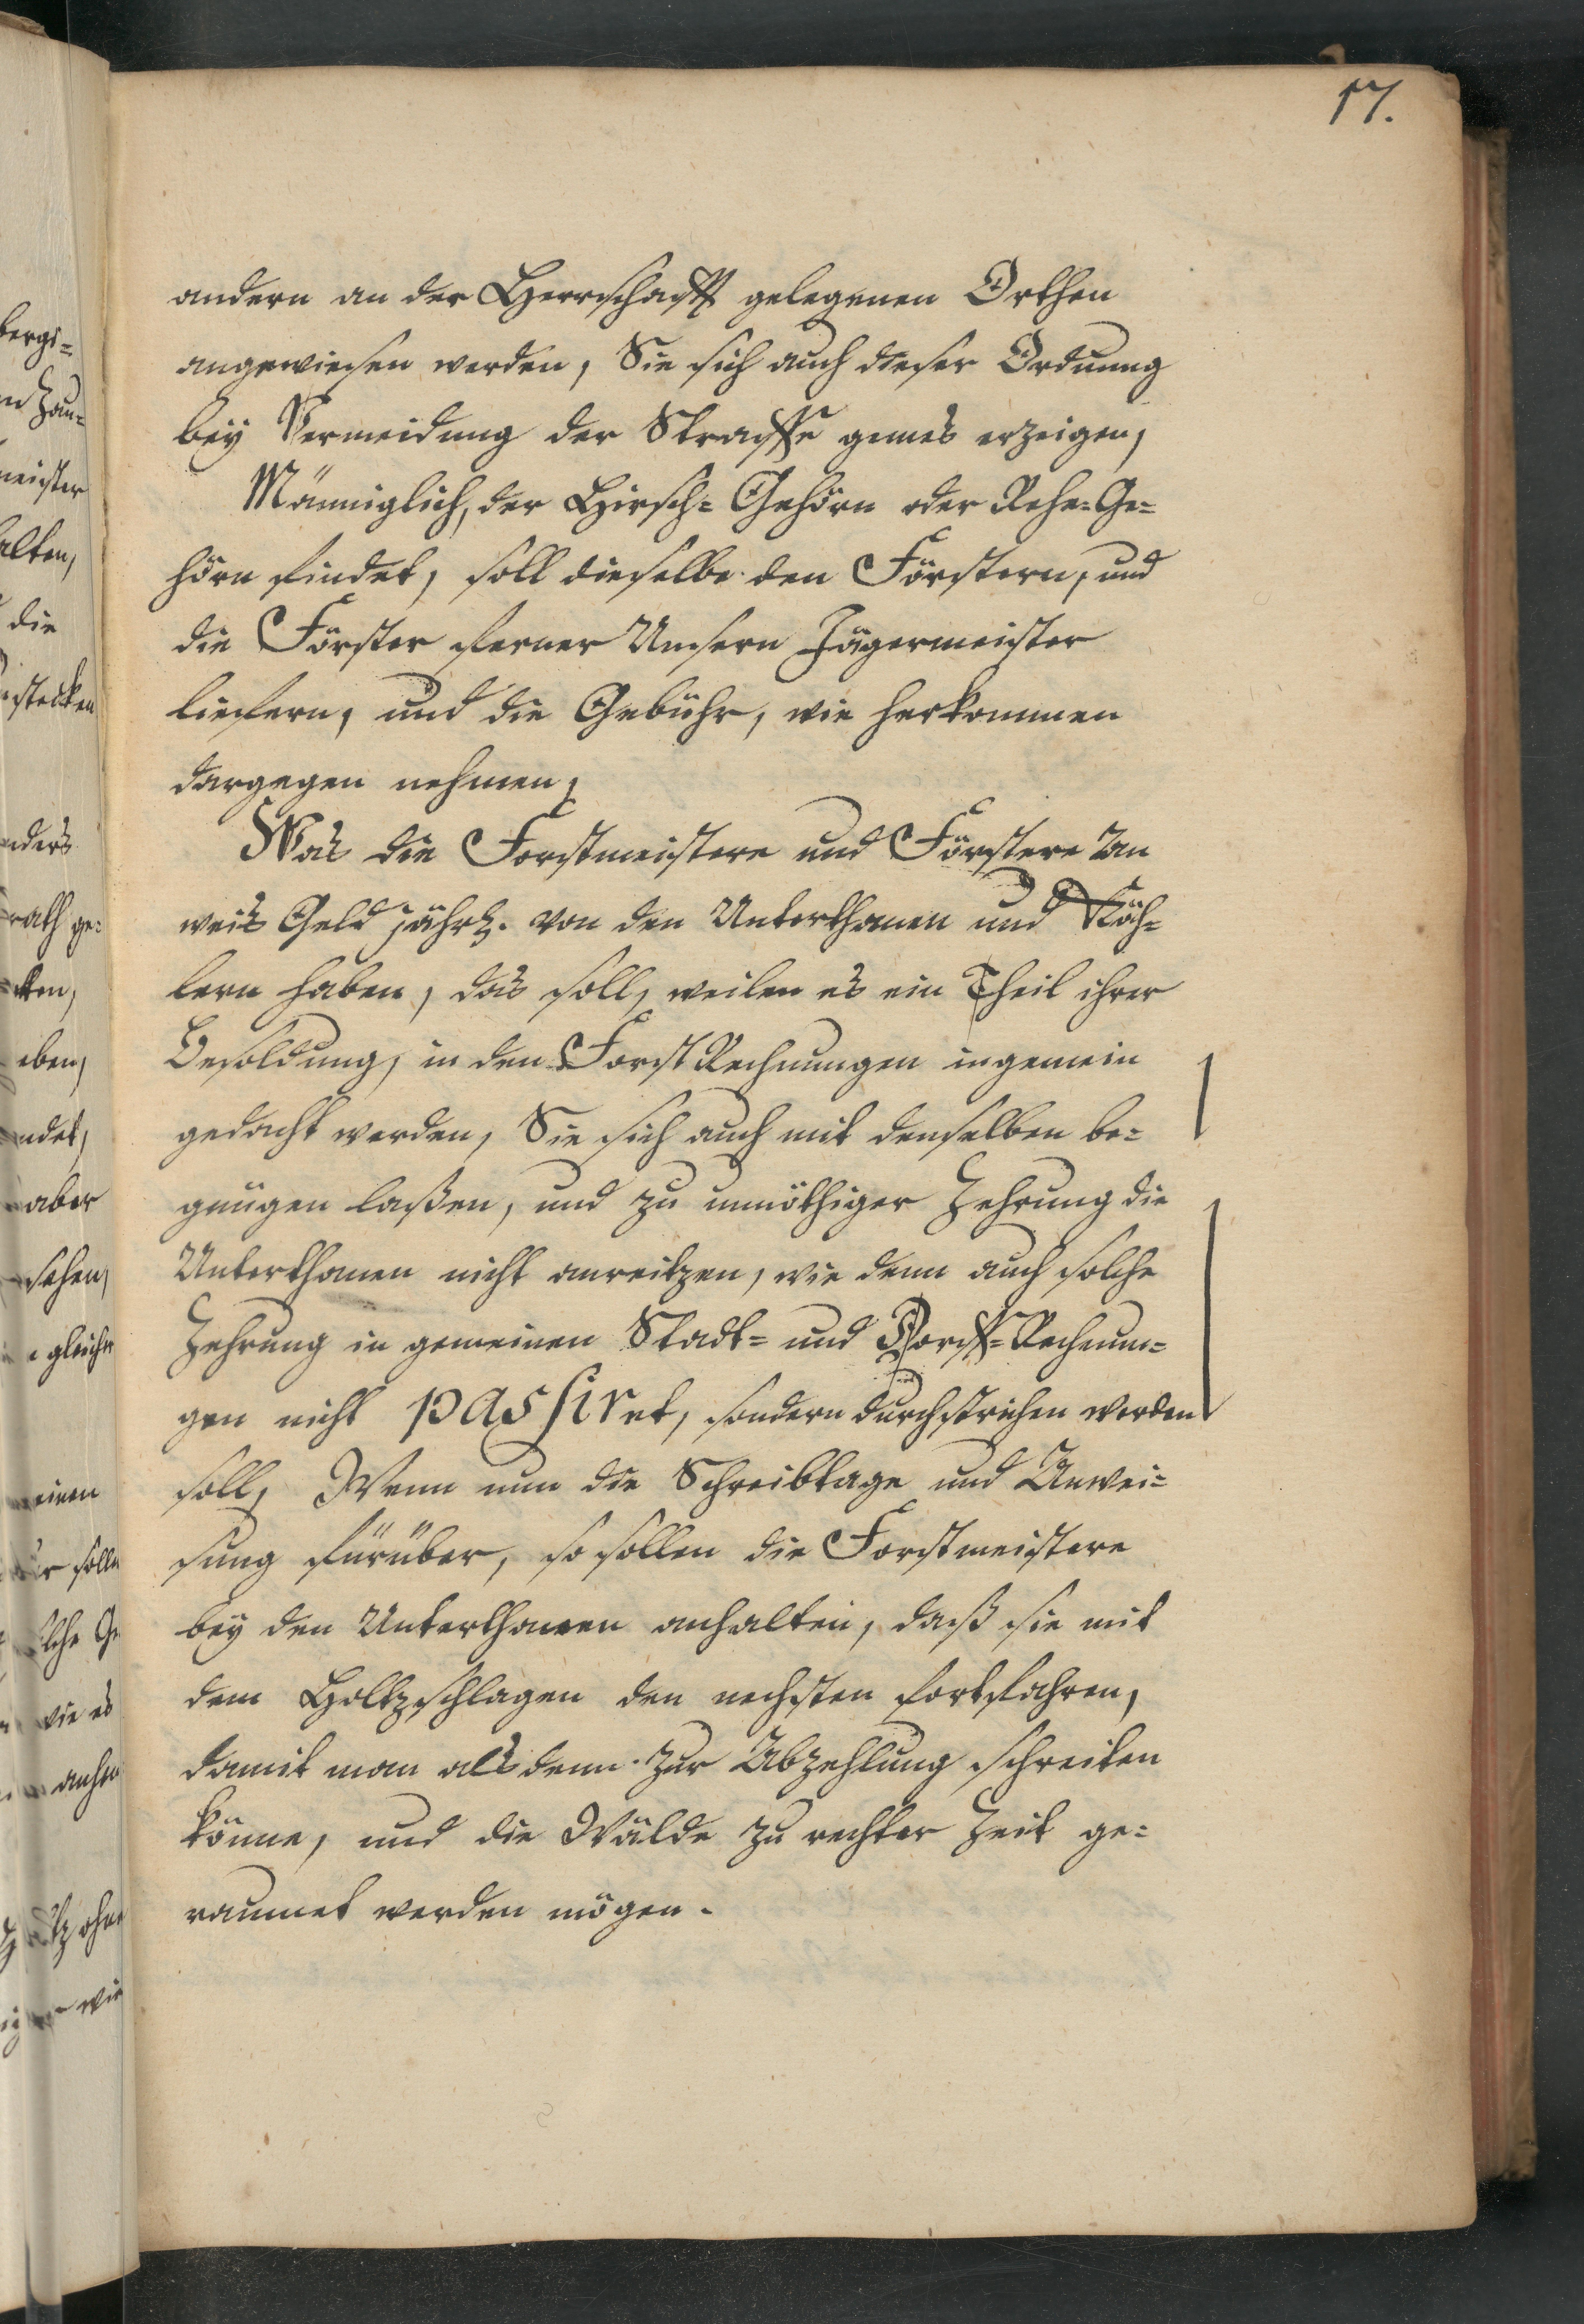 17.
andern an der Herrschafft gelegenen Orthen
angewiesen werden, Sie sich auch dieser Ordnung
bey Vermeidung der Straffe gemäs erzeigen,
Männiglich, der Hirsch= Gehörn oder Rehe=Ge=
hörn findet, soll dieselbe den Förstern, und
die Förster ferner Unsern Jägermeister
liefern, und die Gebühr, wie herkommen
dargegen nehmen,
Was die Forstmeistere und Förstere An
weis Geld jährl. von den Unterthanen und Köh=
lern haben, das soll, weilen es ein Theil ihrer
Besoldung, in den Forst Rechnungen ingemein
gedacht werden, Sie sich auch mit denselben be=
gnügen laßen, und zu unnöthiger Zehrung die
Unterthanen nicht anreitzen, wie denn auch solche
Zehrung in gemeinen Stadt= und Dorff=Rechnun=
gen nicht passiret, sondern durchstrichen werden
soll, Wenn nun die Schreibtage und Anwei=
sung fürüber, so sollen die Forstmeistere
bey den Unterthanen anhalten, daß sie mit
dem Holtzschlagen den nechsten fortfahren,
damit man alsdenn zur Abzehlung schreiten
könne, und die Wälde zu rechter Zeit ge=
raumet werden mögen.